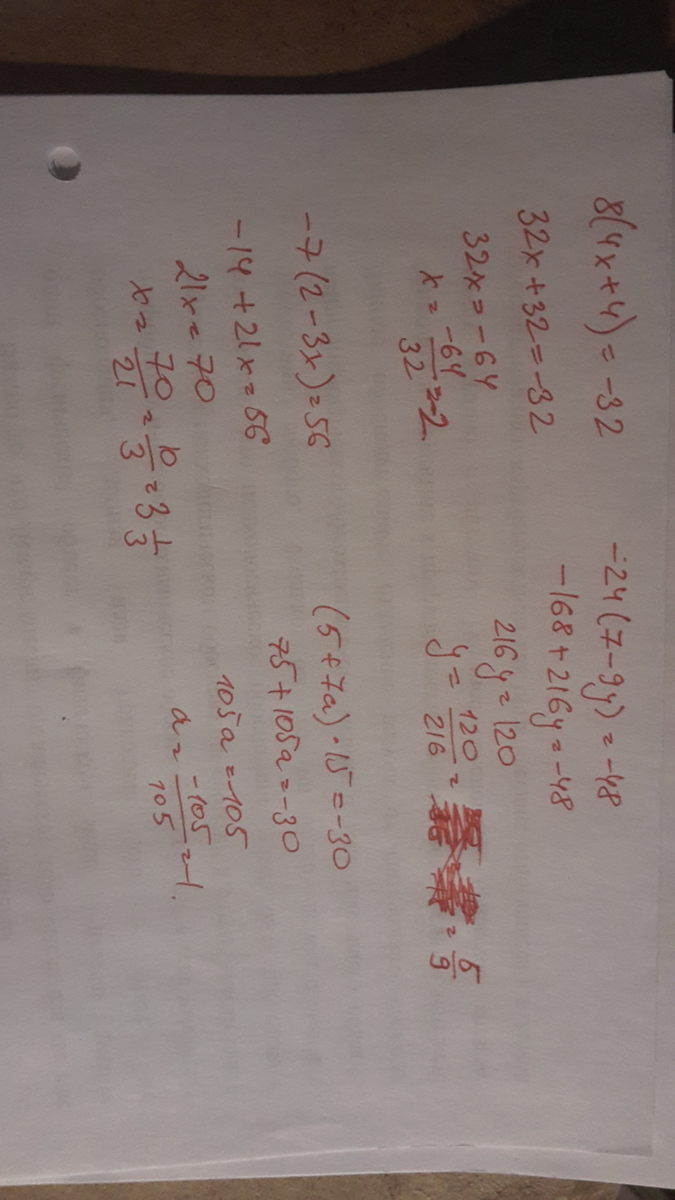 8(4x+4) = -32
32x+32=-32
32x=-64
x = \frac{-64}{32}=-2
-24(7-9y) = -48
-168+216y=-48
216y=120
y= \frac{120}{216} = = \frac{5}{9}
-7(2-3x)=56
-14+21x=56
21x=70
x= \frac{70}{21} = \frac{10}{3} = 3\frac{1}{3}
(5+7a)·15=-30
75+105a=-30
105a=-105
a= \frac{-105}{105}=-1.